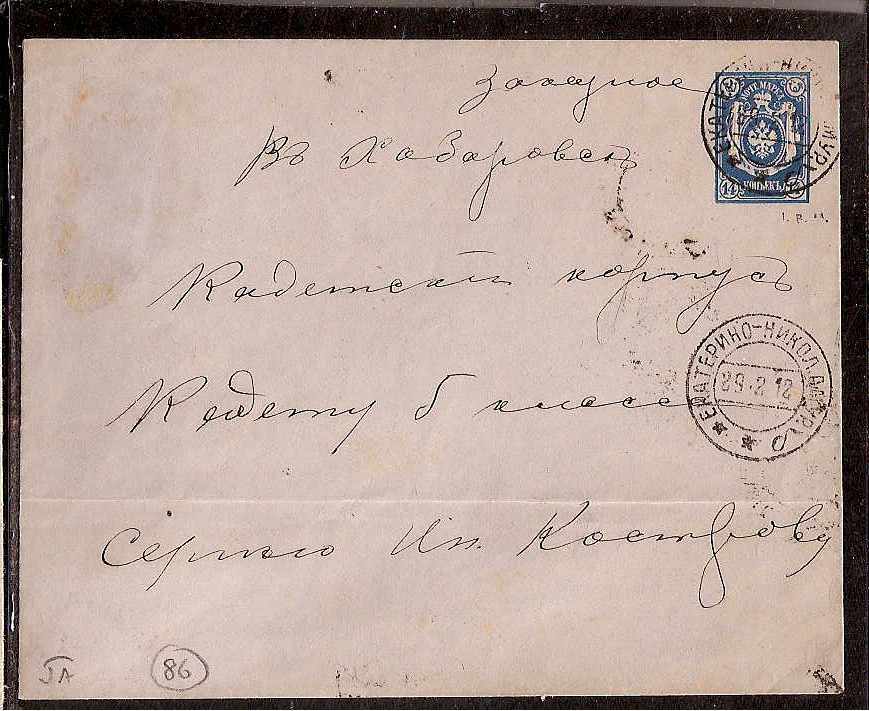 Заказное
Въ Хабаровскъ
Кадетскій корпусъ
Кадету 5 класса
Сергѣю Ин. Кострову
ПОЧТ. МАРКА
14
КОПѢЕКЪ
I. R. M.
ЕКАТЕРИНО-НИКОЛ. АМУР. О
29.2.12
JA
86